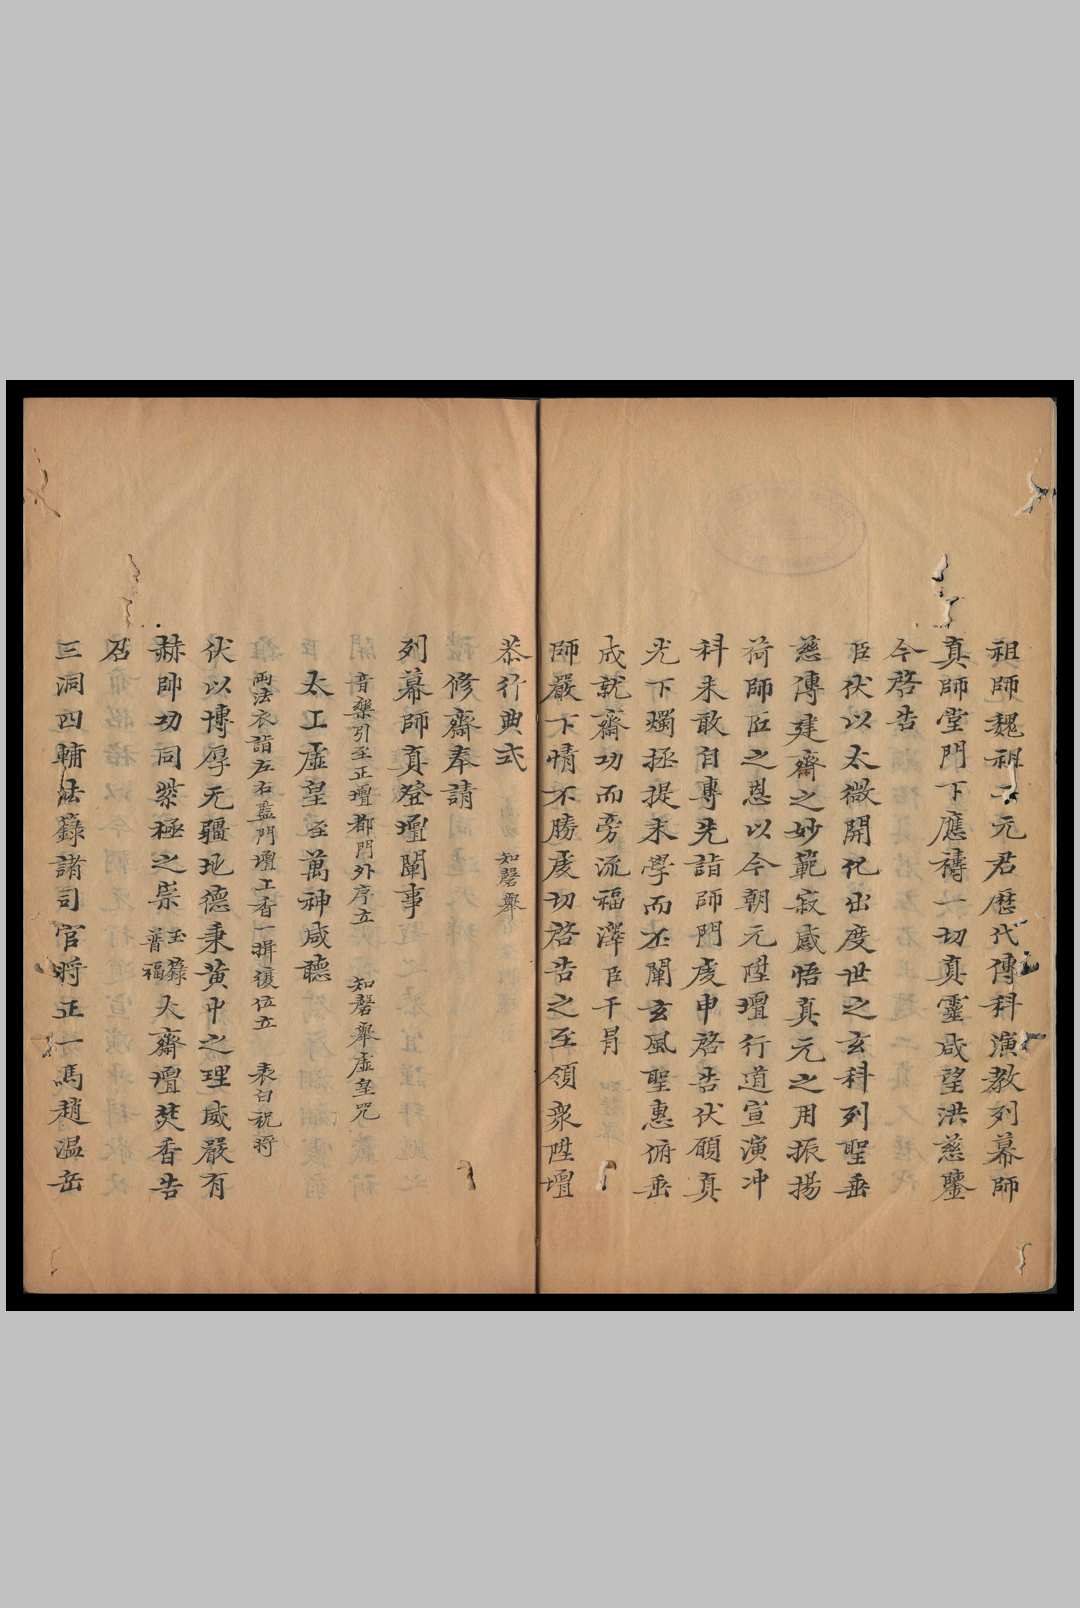 祖師魏祖二元君歷代傳科演教列幕師
真師堂門下應禱一切真靈咸望洪慈鑒
今啓告
臣伏以太微開化出度世之玄科列聖垂
慈傳建齋之妙範寂感悟真元之用振揚
荷師匠之恩以今朝元陞壇行道宣演冲
科未敢自專先詣師門虔申啓告伏願真
光下燭拯提末學而丕闡玄風聖惠俯垂
成就齋功而旁流福澤臣干冒
師嚴下情不勝虔切啓告之至領衆陞壇
恭行典式 知磬舉
修齋奉請
列幕師真登壇闡事
音樂引至正壇都門外序立 知磬舉虛皇咒
太上虛皇至萬神咸聽
両法衣詣左右監門壇上香一拼復位立 表白祝將
伏以博厚无疆地德秉黃中之理威嚴有
赫帥功同紫極之崇玉籙普福大齋壇焚香告
召
三洞四輔法籙諸司官將正一馮趙溫岳